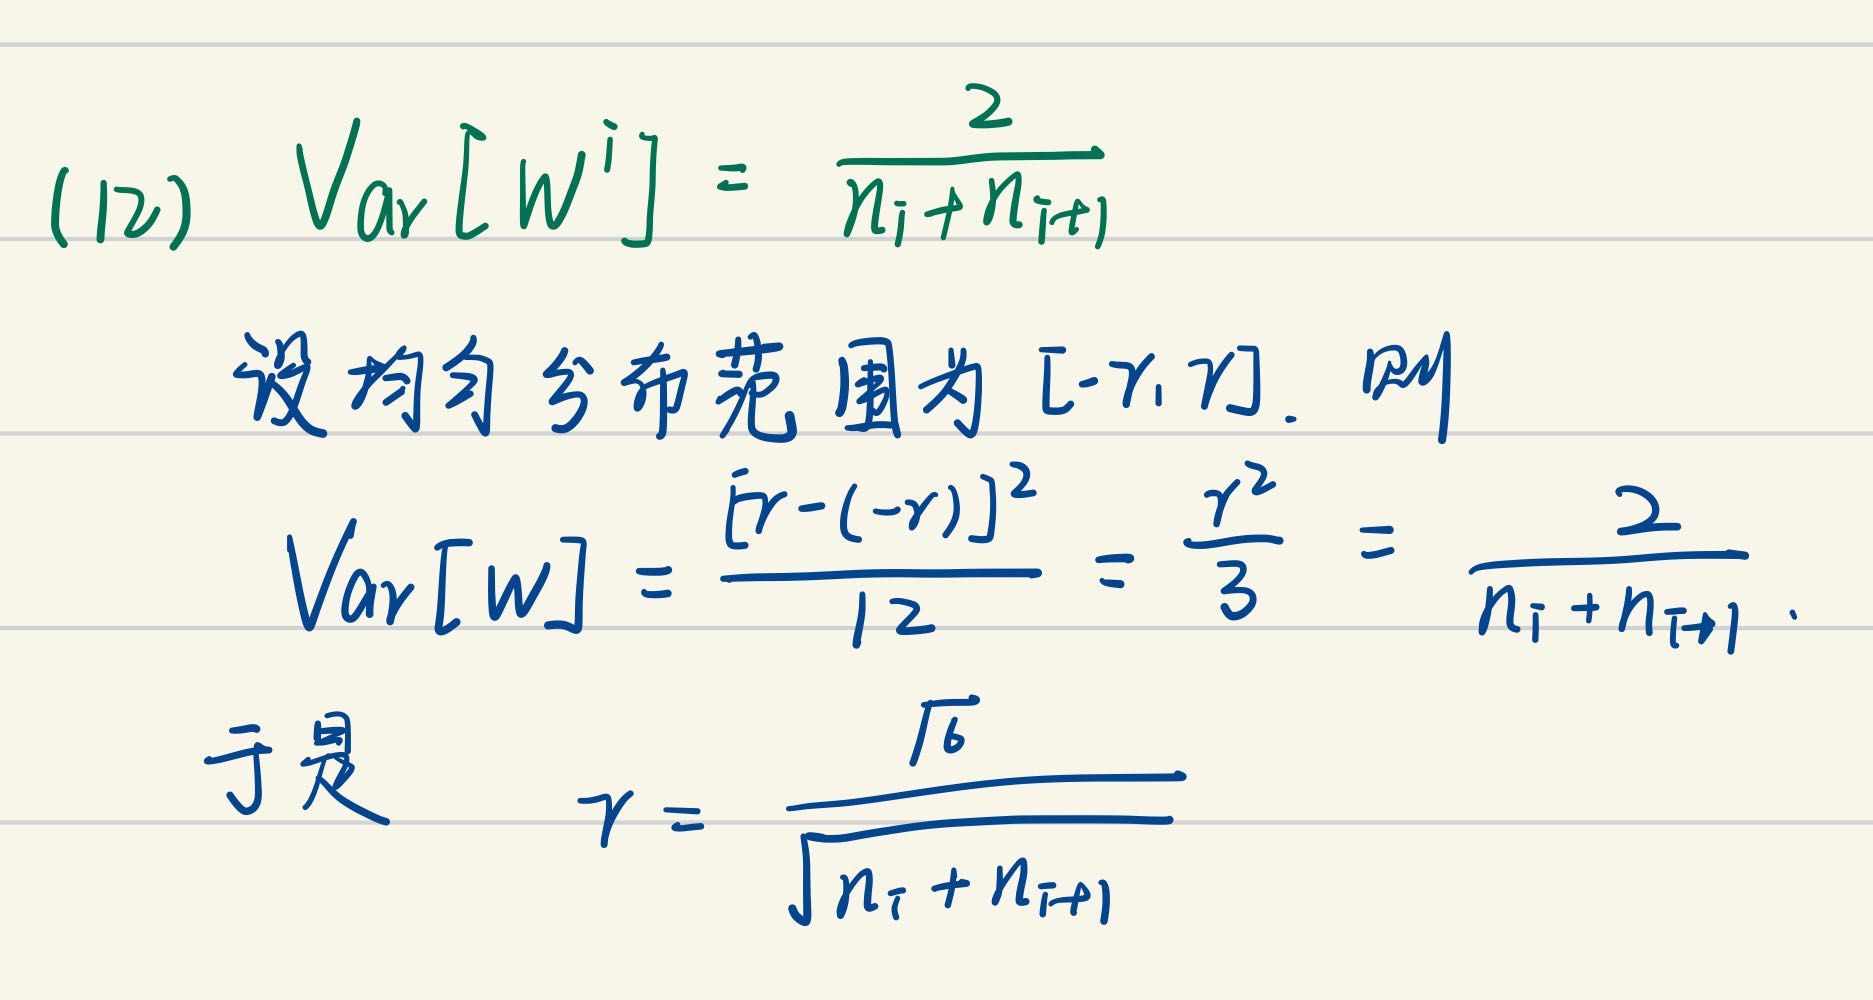 (12) Var[W^i] = 2/(n_i + n_{i+1})
设均匀分布范围为 [-r, r]. 则
Var[W] = [r-(-r)]^2/12 = r^2/3 = 2/(n_i + n_{i+1}).
于是 r = √6/√(n_i + n_{i+1})